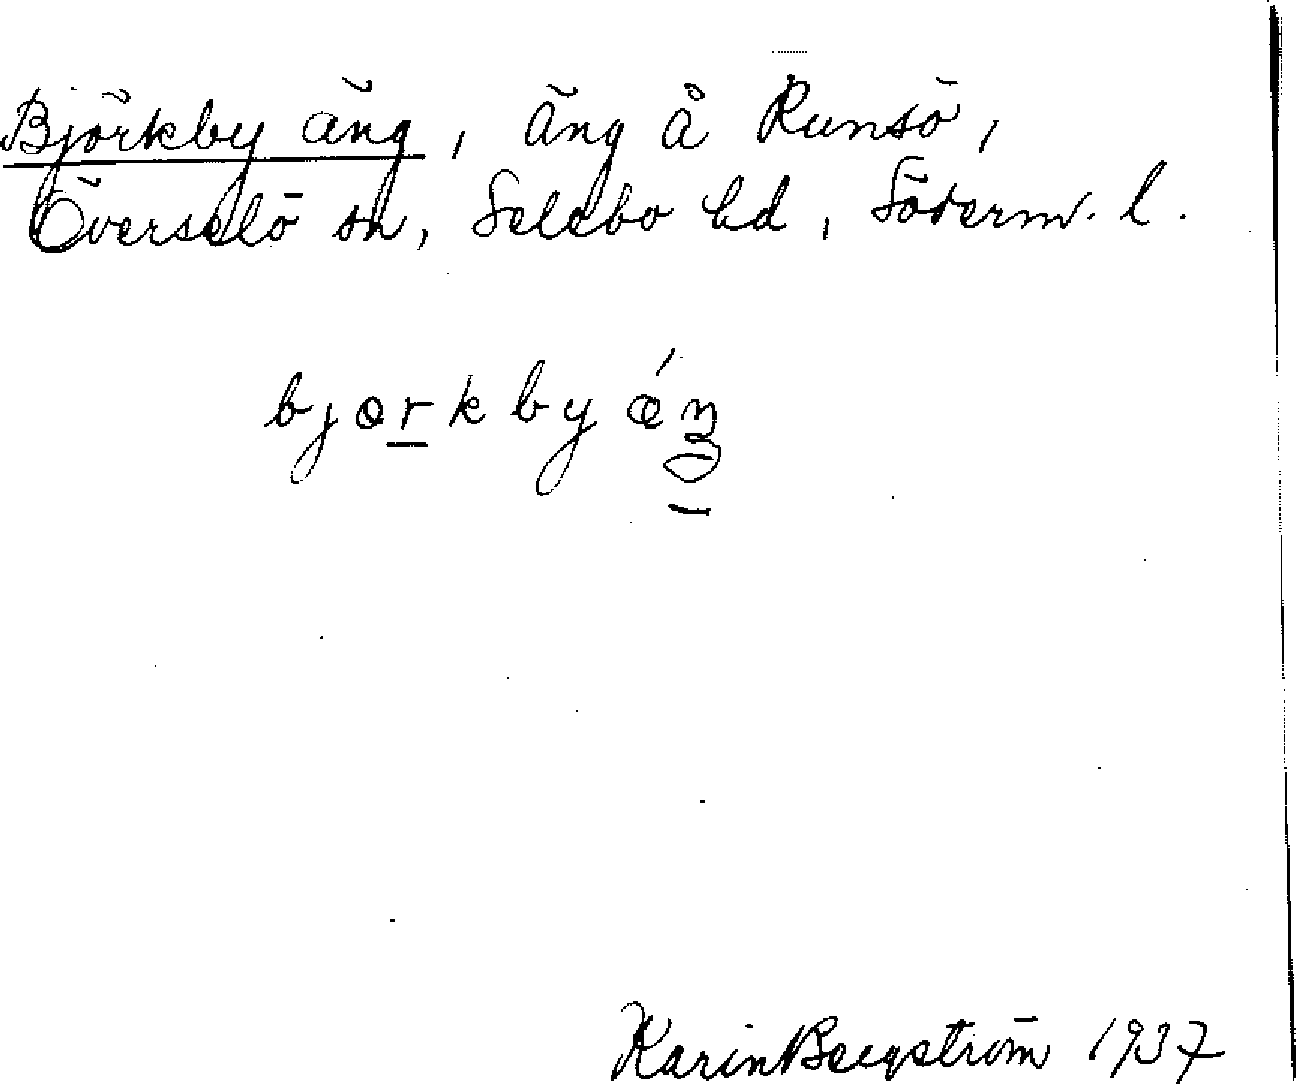 Björkby äng, Äng å Runsö,
Överselö sn, Selebo hd, Söderm. l.
bjørkbyǽŋ
Karin Bergström 1937